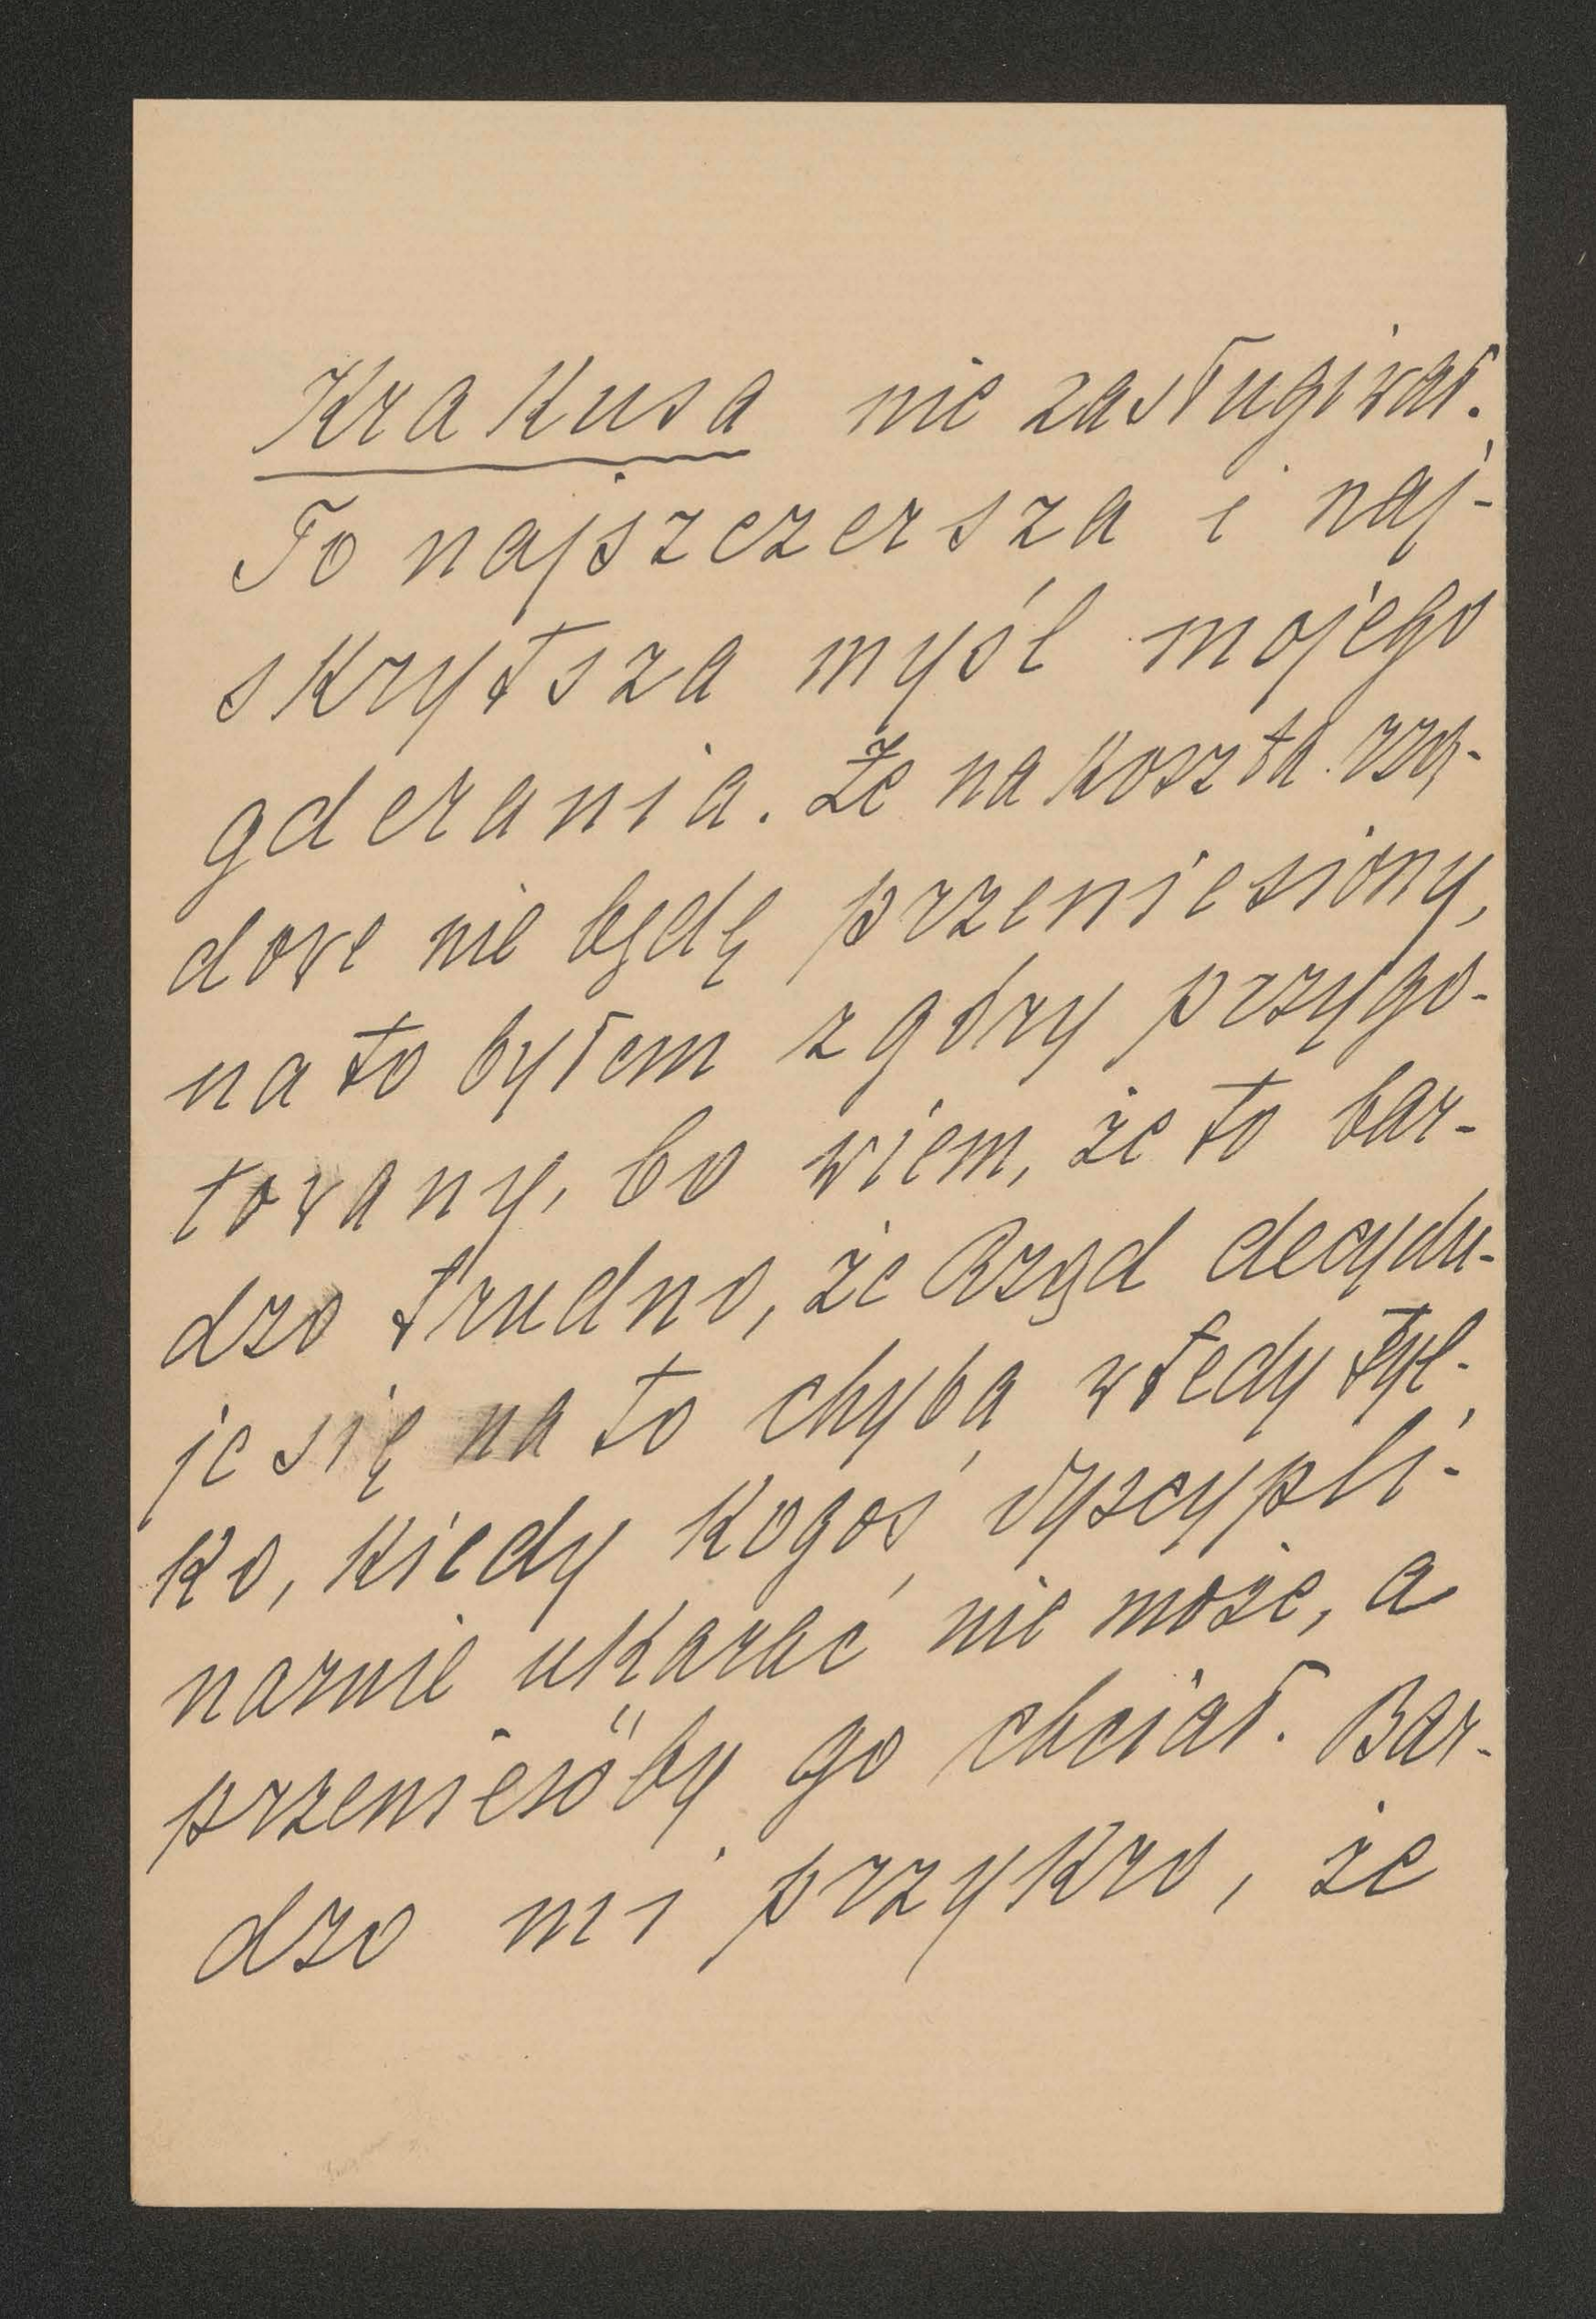 Krakusa nie zasługiwał.
To najszczersza i naj-
skrytsza myśl mojego
gderania. Że na koszta rzą-
dowe nie będę przeniesiony,
na to byłem z góry przygo-
towany, bo wiem, że to bar-
dzo trudno, że Rząd decydu-
je się na to chyba wtedy tyl-
ko, kiedy kogoś dyscypli-
narnie ukarać nie może, a
przenieśćby go chciał. Bar-
dzo mi przykro, że